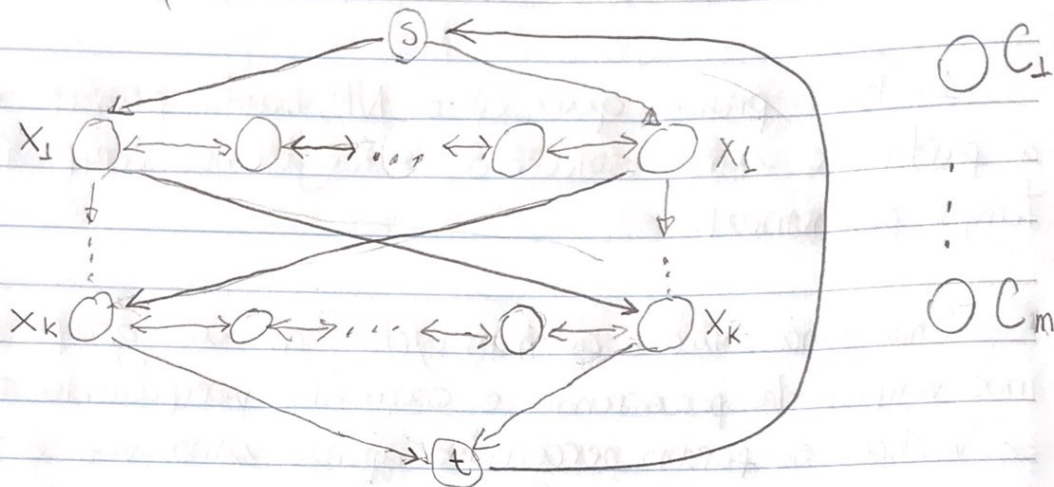 S
C₁
X₁ ... X₁
X_K ... X_K
C_m
t